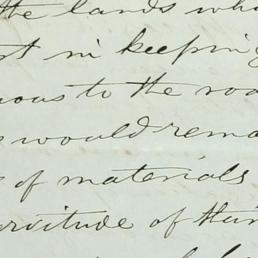 the lands who
st in keeping
uous to the roa
would rema
of materials
ervitude of thin